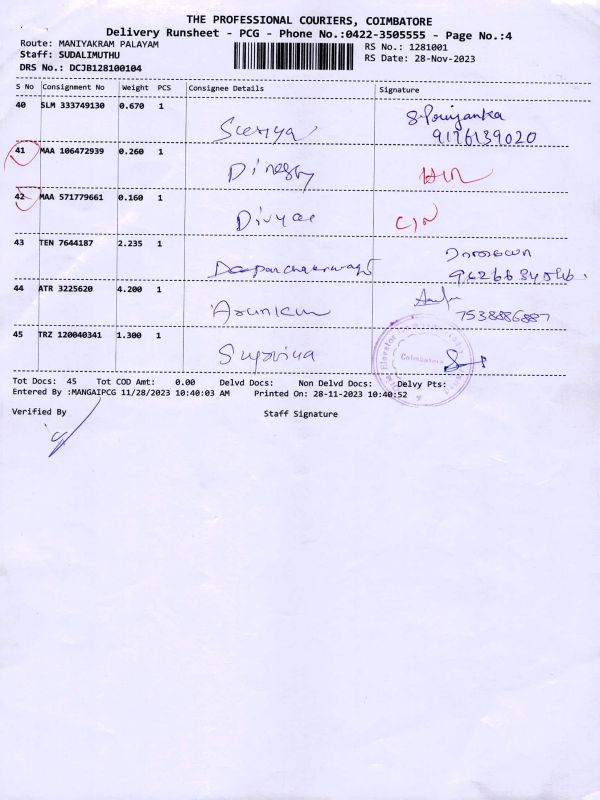 THE PROFESSIONAL COURIERS, COIMBATORE
Delivery Runsheet - PCG - Phone No.:0422-3505555 - Page No.:4
Route: MANIYAKRAM PALAYAM RS No.: 1281001
Staff: SUDALIMUTHU RS Date: 28-Nov-2023
DRS No.: DCJB128100104
S No Consignment No Weight PCS Consignee Details Signature
40 SLM 333749130 0.670 1 Suriya S. Priyanka
9176139020
41 MAA 106472939 0.260 1 Dinesh
42 MAA 571779661 0.160 1 Divya
43 TEN 7644187 2.235 1
44 ATR 3225620 4.200 1 Arunkum
7538886887
45 TRZ 120040341 1.300 1 Supriya
Coimbatore
Tot Docs: 45 Tot COD Amt: 0.00 Delvd Docs: Non Delvd Docs: Delvy Pts:
Entered By :MANGAIPCG 11/28/2023 10:40:03 AM Printed On: 28-11-2023 10:40:52
Verified By Staff Signature